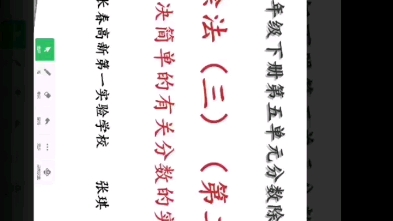 年级下册第五单元分数除
除法（三）（第二
决简单的有关分数的实
长春高新第一实验学校 张琪